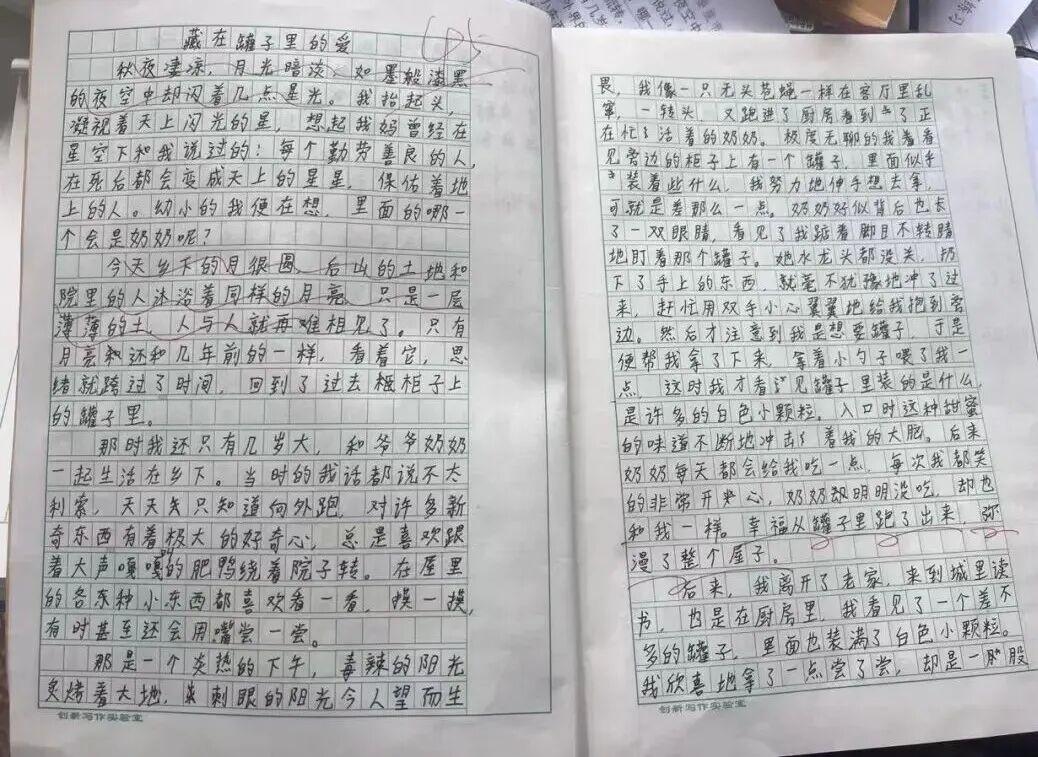 藏在罐子里的爱
秋夜凄凉，月光暗淡，如墨般漆黑
的夜空中却闪着几点星光。我抬起头，
凝视着天上闪光的星，想起我妈曾经在
星空下和我说过的：每个勤劳善良的人，
在死后都会变成天上的星星，保佑着地
上的人。幼小的我便在想，里面的哪一
个会是奶奶呢？
今天乡下的月很圆，后山的土地和
院里的人沐浴着同样的月亮，只是一层
薄薄的土，人与人就再难相见了。只有
月亮和还和几年前的一样，看着它，思
绪就跨过了时间，回到了过去柜柜子上
的罐子里。
那时我还只有几岁大，和爷爷奶奶
一起生活在乡下。当时的我话都说不太
利索，天天只知道向外跑，对许多新
奇东西有着极大的好奇心，总是喜欢跟
着大声嘎嘎的肥鸭绕着院子转。在屋里
的各种小东西都喜欢看一看，摸一摸，
有时甚至还会用嘴尝一尝。
那是一个炎热的下午，毒辣的阳光
炙烤着大地，刺眼的阳光令人望而生
创新写作实验室
畏，我像一只无头苍蝇一样在客厅里乱
窜，一转头，又跑进了厨房看到了正
在忙活着的奶奶。极度无聊的我看看
见旁边的柜子上有一个罐子，里面似乎
装着些什么，我努力地伸手想去拿，
可就是差那么一点。奶奶好似背后也长
了一双眼睛，看见了我踮着脚目不转睛
地盯着那个罐子。她水龙头都没关，扔
下了手上的东西，就毫不犹豫地冲了过
来，赶忙用双手小心翼翼地给我抱到旁
边。然后才注意到我是想要罐子，于是
便帮我拿了下来，拿着小勺子喂了我一
点，这时我才看见罐子里装的是什么，
是许多的白色小颗粒。入口时这种甜蜜
的味道不断地冲击着我的大脑。后来
奶奶每天都会给我吃一点，每次我都笑
的非常开心，奶奶明明没吃，却也
和我一样。幸福从罐子里跑了出来，弥
漫了整个屋子。
后来，我离开了老家，来到城里读
书，也是在厨房里，我看见了一个差不
多的罐子，里面也装满了白色小颗粒。
我欣喜地拿了一点尝了尝，却是一股
创新写作实验室